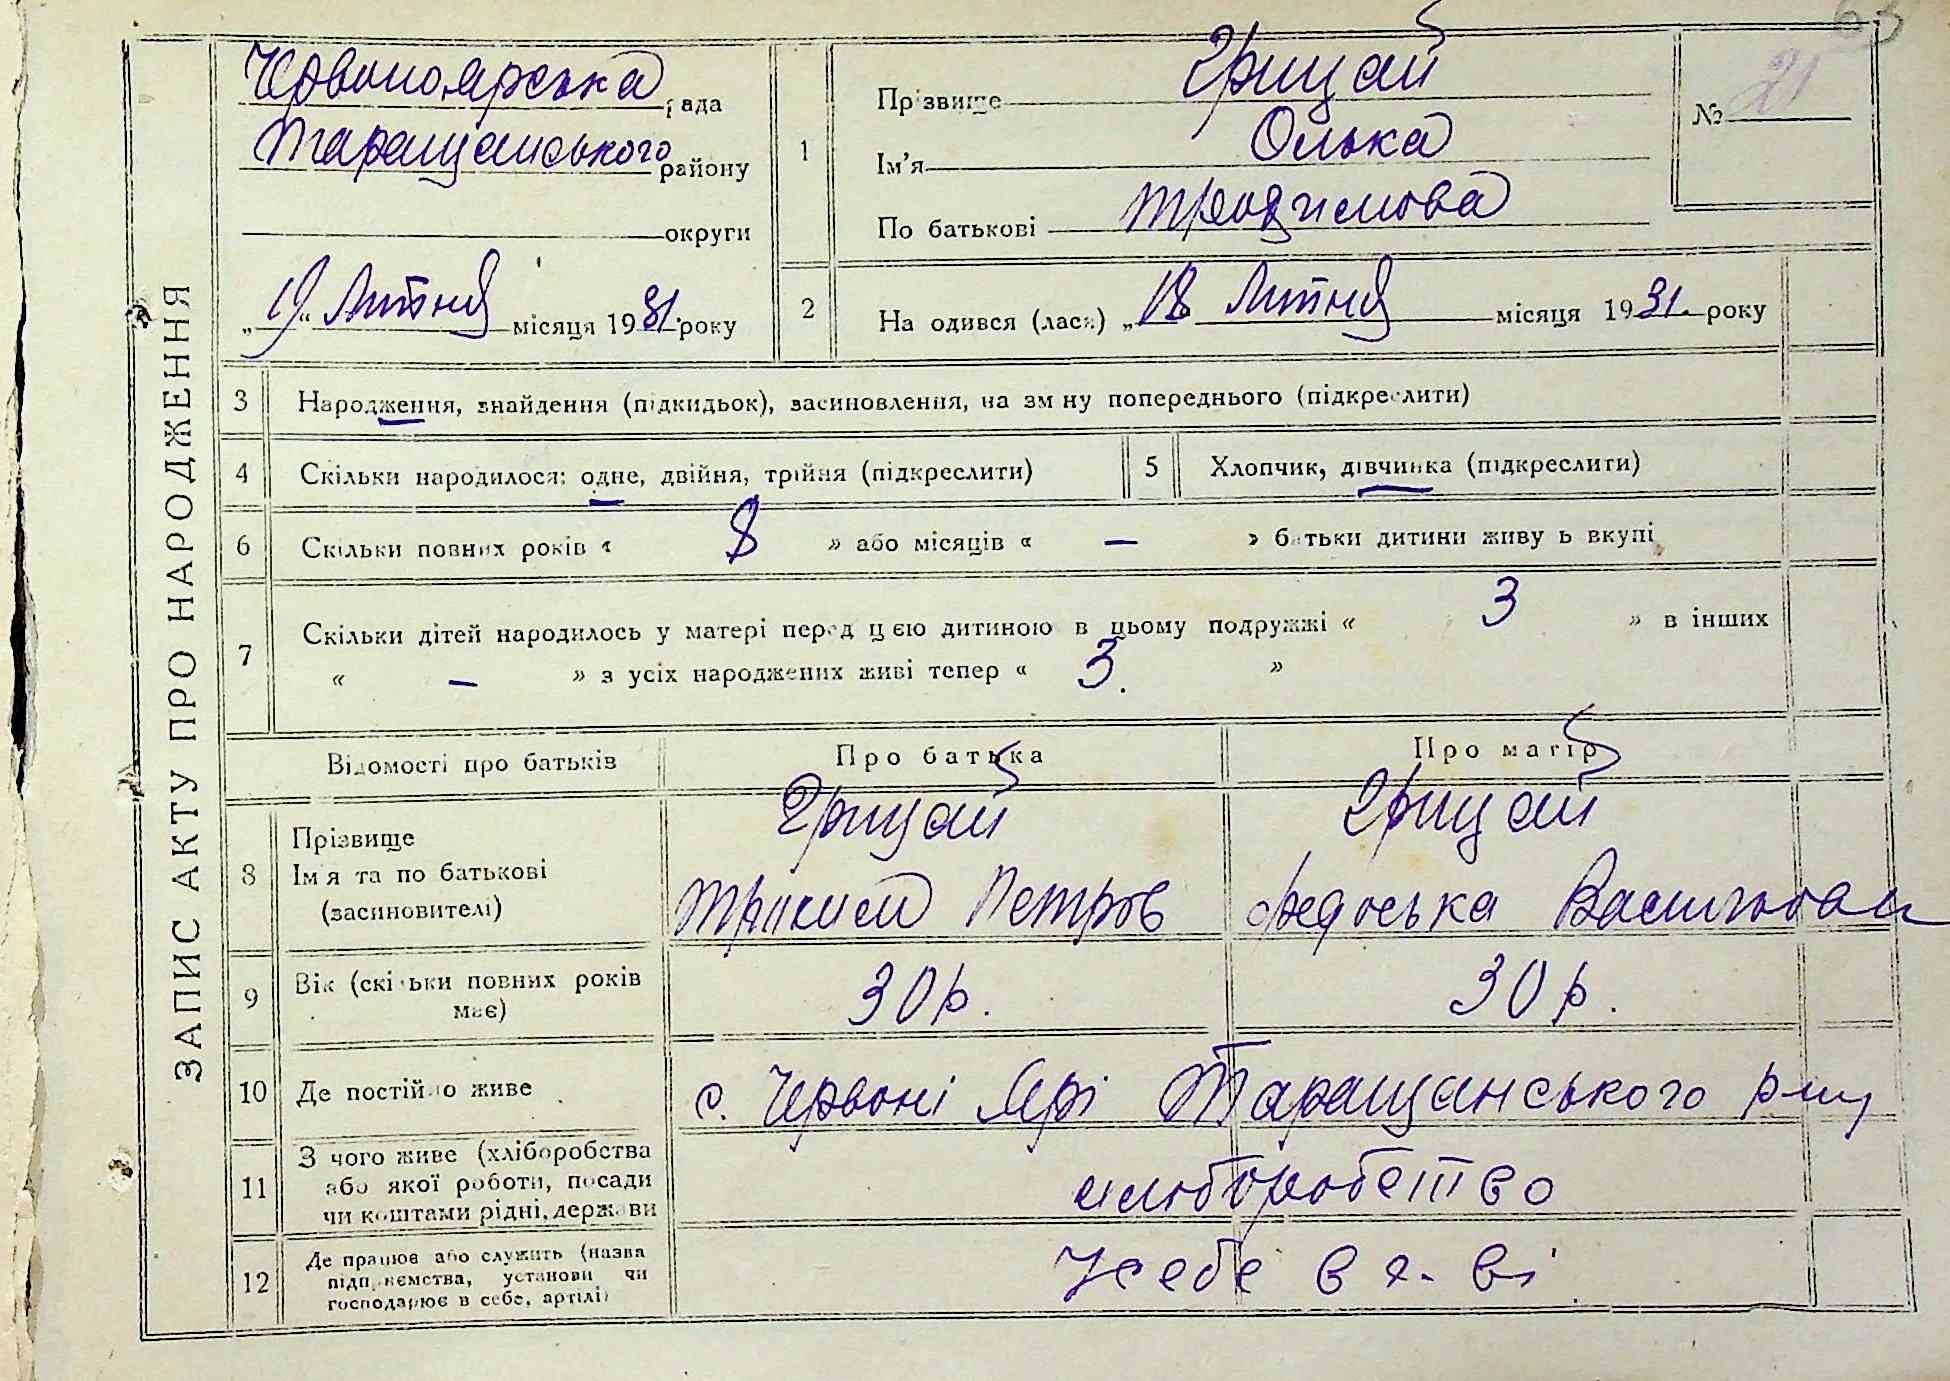 63
ЗАПИС АКТУ ПРО НАРОДЖЕННЯ
Червоноярська рада
Таращанського району
округи
„19“ Лютня місяця 1931 року
1
Прізвище Грицай
Ім’я Олька
По батькові
№ 21
2
На одився (лася) „18 Лютня місяця 1931. року
3 Народження, знайдення (підкидьок), засиновлення, на зм ну попереднього (підкреслити)
4 Скільки народилося: одне, двійня, трійня (підкреслити) 5 Хлопчик, дівчинка (підкреслити)
6 Скільки повних років « 8 » або місяців « — » батьки дитини живу ь вкупі
7 Скільки дітей народилось у матері перед цією дитиною в цьому подружжі « 3 » в інших
« — » з усіх народжених живі тепер « 3. »
Відомості про батьків Про батька Про матір
8 Прізвище
Ім'я та по батькові
(засиновителі)
Грицай Грицай
Петров Федоська
9 Вік (скільки повних років
має)
30 р. 30 р.
10 Де постійно живе с. Червоні Ярі Таращанського р-ну
11 З чого живе (хліборобства
або якої роботи, посади
чи коштами рідні, держави
хлюборобство
12 Де працює або служить (назва
підприємства, установи чи
господарює в себе, артілі)
У себе в